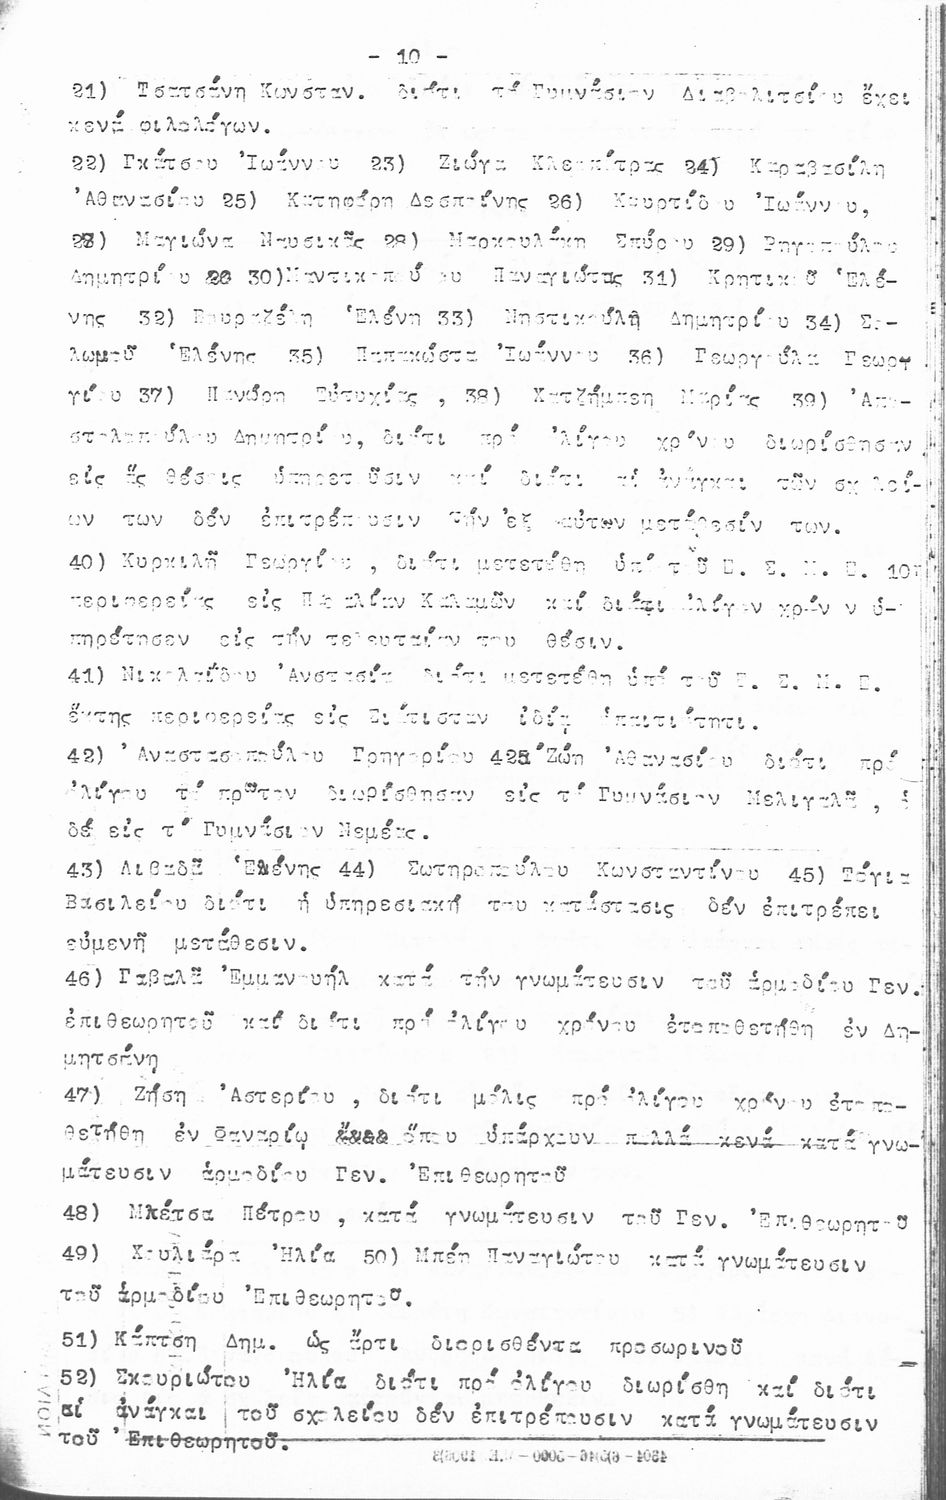 - 10 -
21) Τσατσάνη Κωνσταν. διότι τό Γυμνάσιον Διαβολιτσίου ἔχει
κενά φιλολόγων.
22) Γκάτσου Ἰωάννου 23) Ζιώγα Κλεοπάτρας 24) Καραβασίλη
Ἀθανασίου 25) Κατηφόρη Δεσποίνης 26) Κουρτίδου Ἰωάννου,
27) Μαγιώνα Ναυσικᾶς 28) Μαρκουλάκη Σπύρου 29) Ρηγοπούλου
Δημητρίου 30) Παναγιώτας 31) Κρητικοῦ Ἑλέ-
νης 32) Βουραζέλη Ἑλένη 33) Νηστικούλη Δημητρίου 34) Σο-
λωμοῦ Ἑλένης 35) Παπακώστα Ἰωάννου 36) Γεωργούλα Γεωργ
γίου 37) Πανώρη Εὐτυχίας , 38) Χατζήμπεη Μαρίας 39) Ἀπο-
στολοπούλου Δημητρίου, διότι πρό ὀλίγου χρόνου διωρίσθησαν
εἰς ἅς θέσεις ὑπηρετοῦσιν καί διότι αἱ ἀνάγκαι τῶν σχολεί-
ων των δέν ἐπιτρέπουσιν τήν ἐξ αὐτῶν μετάθεσίν των.
40) Κυρκιλῆ Γεωργίου , διότι μετετέθη ὑπό τοῦ Κ. Σ. Μ. Ε. 10η
περιφερείας εἰς Παραλίαν Καλαμῶν καί διότι ὀλίγον χρόνον ὑ-
πηρέτησεν εἰς τήν τελευταίαν του θέσιν.
41) Νικολαΐδου Ἀναστασία διότι μετετέθη ὑπό τοῦ Κ. Σ. Μ. Ε.
ἕκτης περιφερείας εἰς Σιάτισταν ἰδίᾳ ὑπαιτιότητι.
42) Ἀναστασοπούλου Γρηγορίου 42α Ζώη Ἀθανασίου διότι πρό
ὀλίγου τό πρῶτον διωρίσθησαν εἰς τό Γυμνάσιον Μελιγαλᾶ , ὁ
δέ εἰς τό Γυμνάσιον Νεμέας.
43) Λιβαδᾶ Ἑλένης 44) Σωτηροπούλου Κωνσταντίνου 45) Τόγια
Βασιλείου διότι ἡ ὑπηρεσιακή του κατάστασις δέν ἐπιτρέπει
εὐμενῆ μετάθεσιν.
46) Γαβαλᾶ Ἐμμανουήλ κατά τήν γνωμάτευσιν τοῦ ἁρμοδίου Γεν.
ἐπιθεωρητοῦ καί διότι πρό ὀλίγου χρόνου ἐτοποθετήθη ἐν Δη-
μητσάνῃ
47) Ζήση Ἀστερίου , διότι μόλις πρό ὀλίγου χρόνου ἐτοπο-
θετήθη ἐν Φαναρίῳ ὅπου ὑπάρχουν πολλά κενά κατά γνω-
μάτευσιν ἁρμοδίου Γεν. Ἐπιθεωρητοῦ
48) Μπέτσα Πέτρου , κατά γνωμάτευσιν τοῦ Γεν. Ἐπιθεωρητοῦ
49) Χουλιάρα Ἠλία 50) Μπέη Παναγιώτου κατά γνωμάτευσιν
τοῦ ἁρμοδίου Ἐπιθεωρητοῦ.
51) Κάπτση Δημ. ὡς ἄρτι διορισθέντα προσωρινοῦ
52) Σκουριώτου Ἠλία διότι πρό ὀλίγου διωρίσθη καί διότι
αἱ ἀνάγκαι τοῦ σχολείου δέν ἐπιτρέπουσιν κατά γνωμάτευσιν
τοῦ Ἐπιθεωρητοῦ.